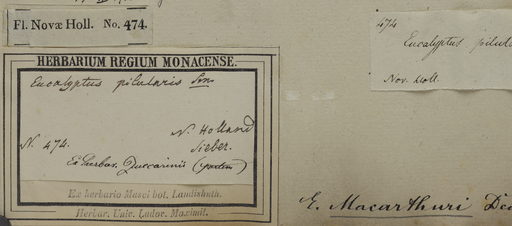 Fl. Novæ Holl. No. 474.
HERBARIUM REGIUM MONACENSE.
Eucalyptus pilularis Sm
N. Holland
N. 474. Sieber.
Ex herbar. Zuccarinii
Ex herbario Musei bot. Landishuth.
Herbar. Univ. Ludov. Maximil.
474
Eucalyptus pilula
Nov. Holl.
E. Macarthuri De